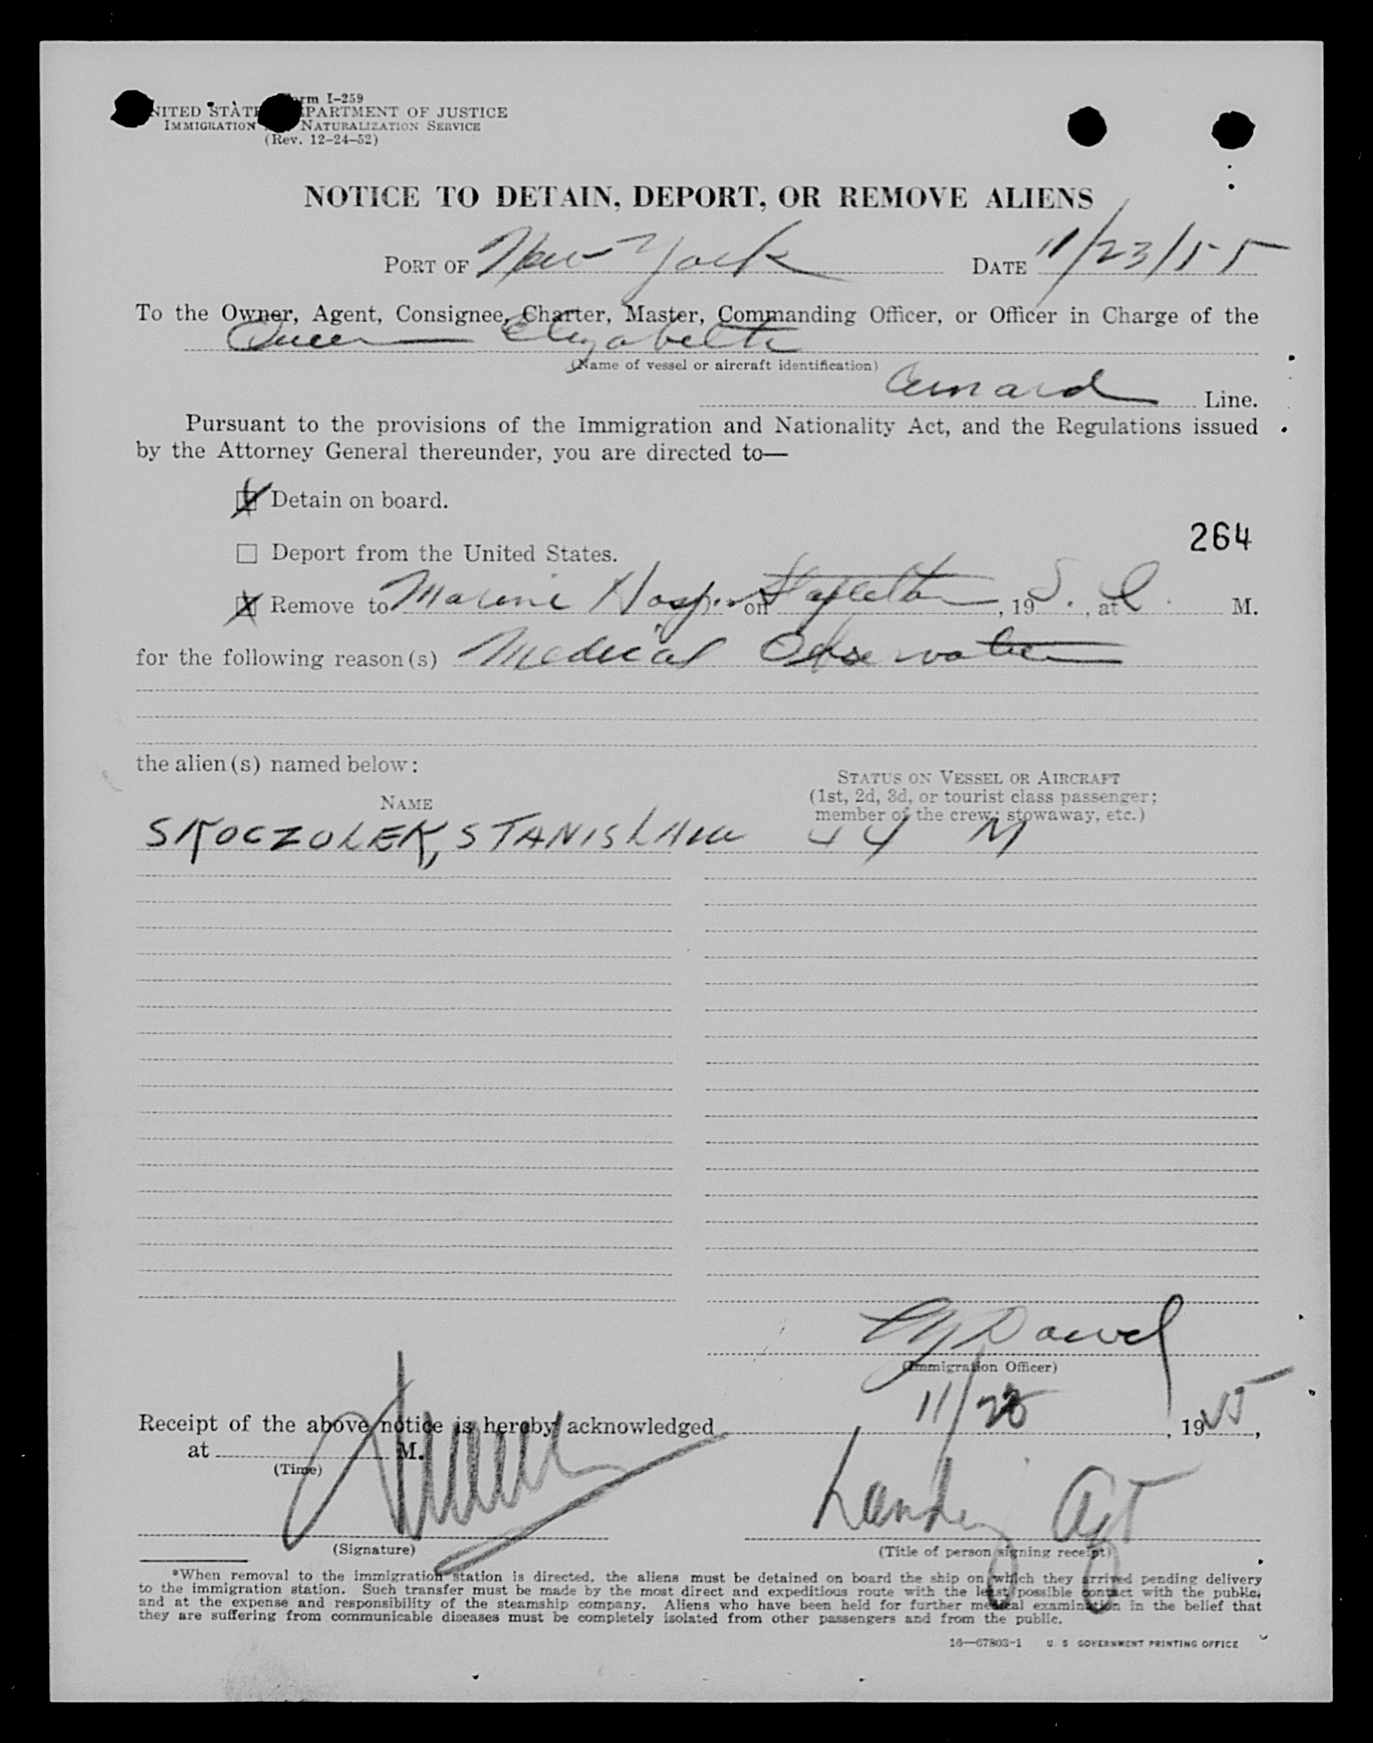 Form I-259
UNITED STATES DEPARTMENT OF JUSTICE
IMMIGRATION AND NATURALIZATION SERVICE
(Rev. 12-24-52)
NOTICE TO DETAIN, DEPORT, OR REMOVE ALIENS
PORT OF New York DATE 11/23/55
To the Owner, Agent, Consignee, Charter, Master, Commanding Officer, or Officer in Charge of the
Queen Elizabeth
(Name of vessel or aircraft identification)
Cunard Line.
Pursuant to the provisions of the Immigration and Nationality Act, and the Regulations issued
by the Attorney General thereunder, you are directed to—
Detain on board.
264
Deport from the United States.
Remove to Marine Hosp. on Stapleton, 19 S., at I. M.
for the following reason(s) Medical Observation
the alien(s) named below:
STATUS ON VESSEL OR AIRCRAFT
(1st, 2d, 3d, or tourist class passenger;
member of the crew; stowaway, etc.)
NAME
SKOCZOLEK, STANISLAW 44 M
(Immigration Officer)
Receipt of the above notice is hereby acknowledged 11/23, 1955,
at M.
(Time)
Landing Agt
(Signature) (Title of person signing receipt)
*When removal to the immigration station is directed, the aliens must be detained on board the ship on which they arrived pending delivery
to the immigration station. Such transfer must be made by the most direct and expeditious route with the least possible contact with the public,
and at the expense and responsibility of the steamship company. Aliens who have been held for further medical examination in the belief that
they are suffering from communicable diseases must be completely isolated from other passengers and from the public.
16—67803-1 U. S. GOVERNMENT PRINTING OFFICE